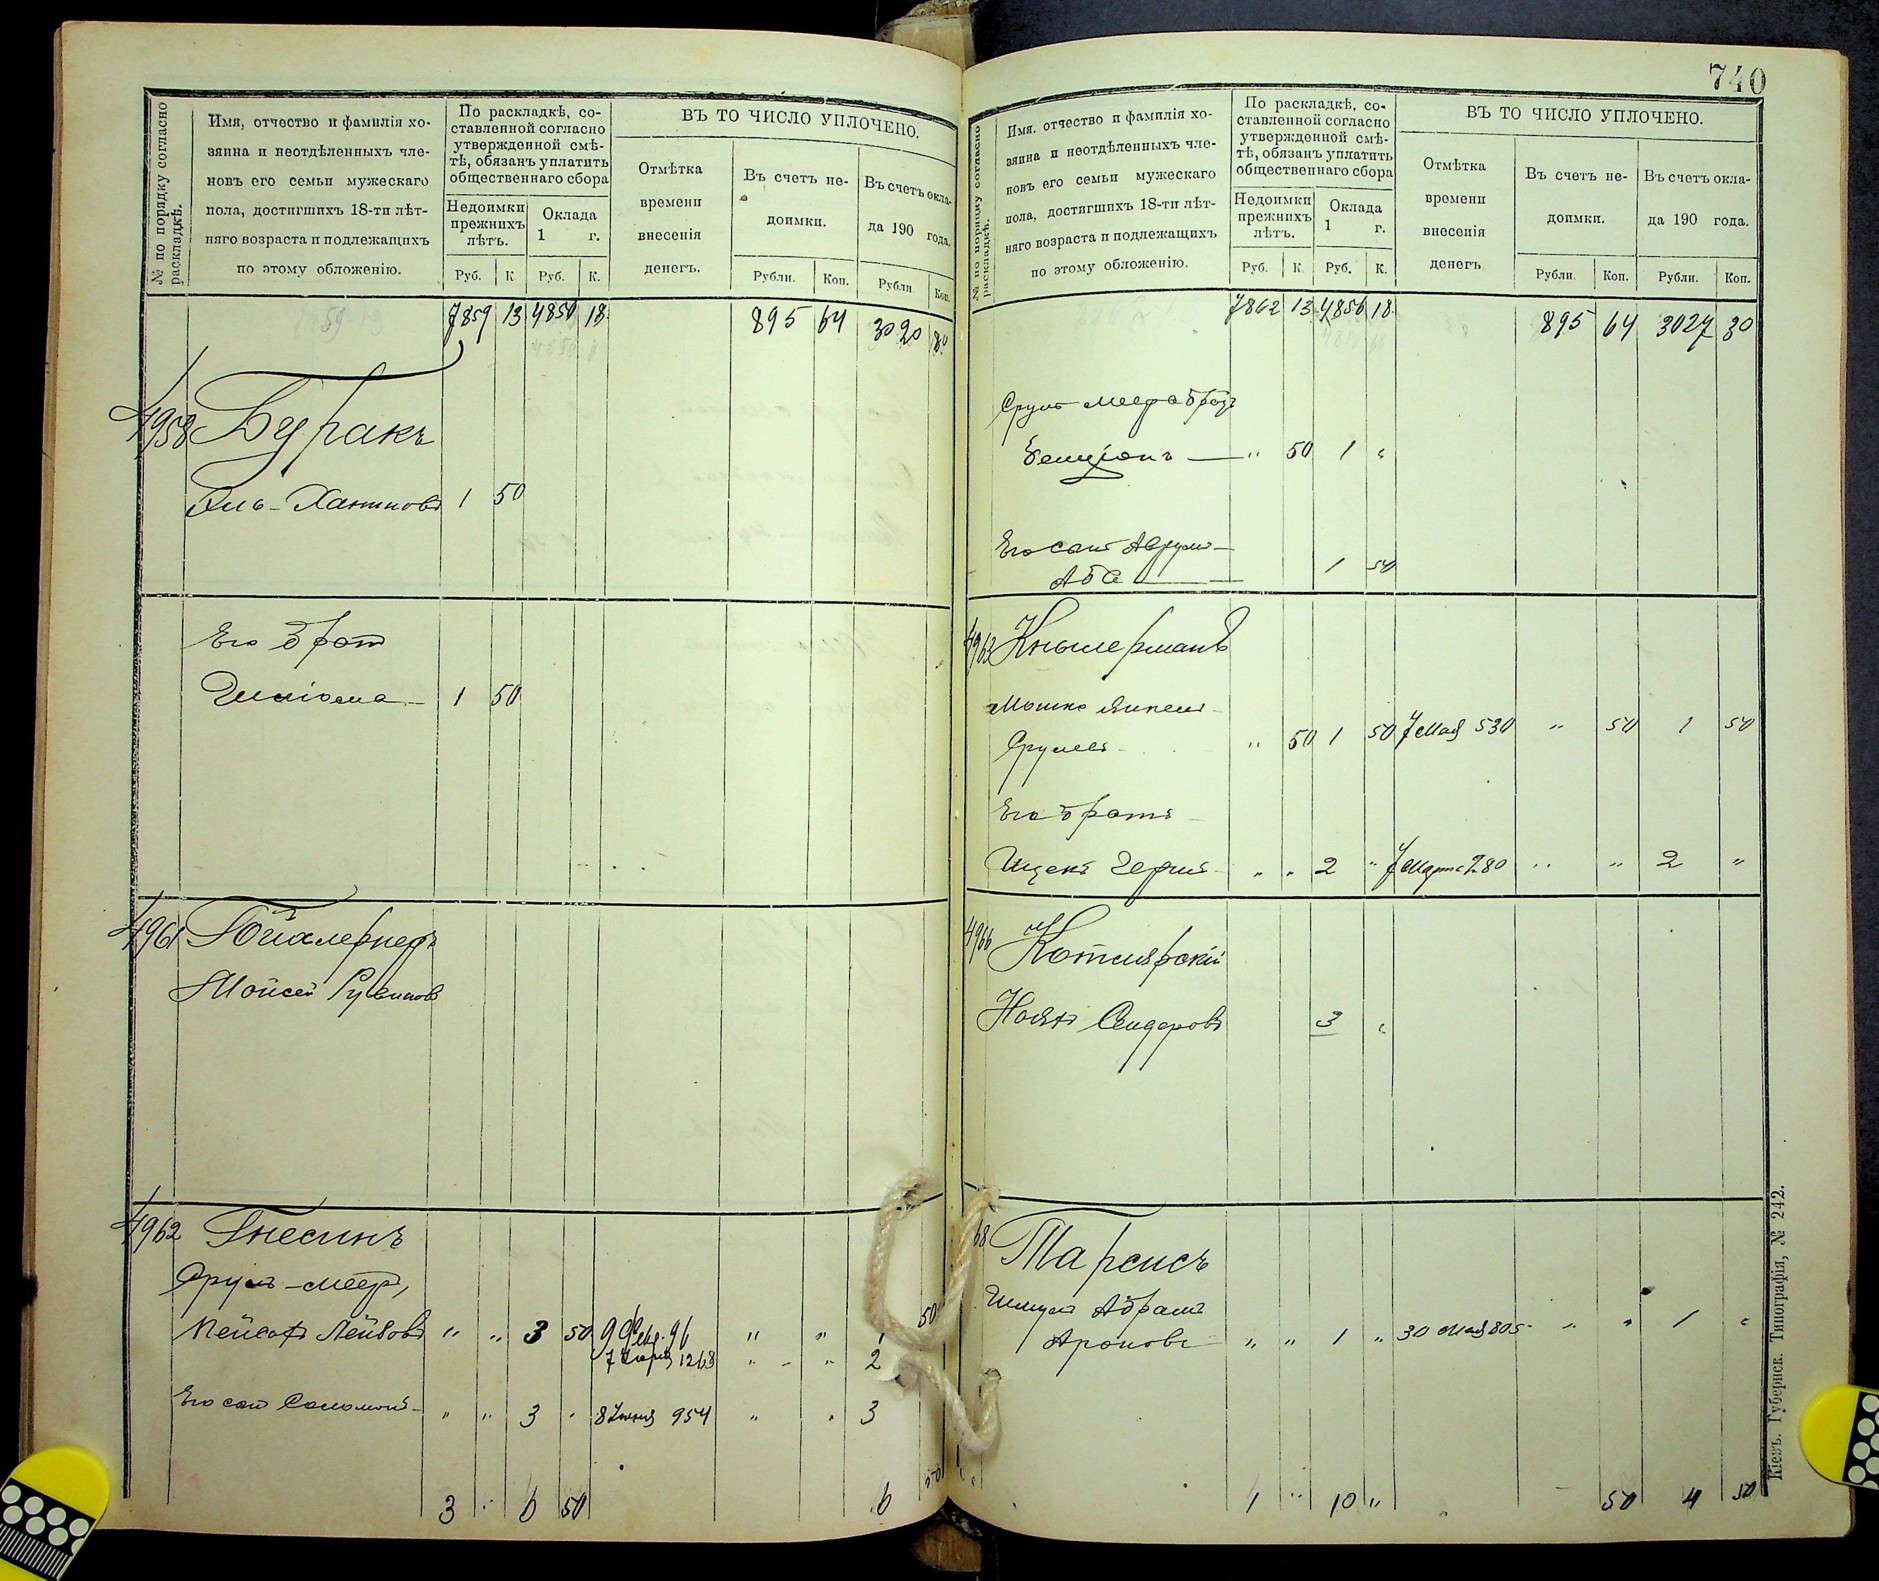 740
№ по порядку согласно раскладкѣ.
Имя, отчество и фамилія хо-
зяина и неотдѣленныхъ чле-
новъ его семьи мужескаго
пола, достигшихъ 18-ти лѣт-
няго возраста и подлежащихъ
по этому обложенію.
По раскладкѣ, со-
ставленной согласно
утвержденной смѣ-
тѣ, обязанъ уплатить
общественнаго сбора
Недоимки
прежнихъ
лѣтъ.
Оклада
1 г.
Руб. К. Руб. К.
ВЪ ТО ЧИСЛО УПЛОЧЕНО.
Отмѣтка
времени
внесенія
денегъ.
Въ счетъ не-
доимки.
Въ счетъ окла-
да 190 года.
Рубли. Коп. Рубли Коп.
7859 13 4850 18 895 64 3020 80
4958 Буракъ
1 50
Его брат
1 50
4961
Мойсей Рувинов
4962 Гнесинъ
Сруль-Меер,
Лейбовъ " " 3 50 9 96 " "
7 1263 " " 2
50
Его сын Соломонъ " " 3 " 8 Іюня 954 " " 3
3 " 6 50 6 50
№ по порядку согласно раскладкѣ.
Имя, отчество и фамилія хо-
зяина и неотдѣленныхъ чле-
новъ его семьи мужескаго
пола, достигшихъ 18-ти лѣт-
няго возраста и подлежащихъ
по этому обложенію.
По раскладкѣ, со-
ставленной согласно
утвержденной смѣ-
тѣ, обязанъ уплатить
общественнаго сбора
Недоимки
прежнихъ
лѣтъ.
Оклада
1 г.
Руб. К. Руб. К.
ВЪ ТО ЧИСЛО УПЛОЧЕНО.
Отмѣтка
времени
внесенія
денегъ.
Въ счетъ не-
доимки.
Въ счетъ окла-
да 190 года.
Рубли. Коп. Рубли. Коп.
7862 13 4856 18 895 64 3027 30
Сруля Меера брат
Бенціонъ " 50 1 "
Его сын Аврум
Аба 1 50
Мошко
Срулев " 50 1 50 7 Мая 530 " 50 1 50
Его братъ
Ицекъ Герш " " 2 " 7 Марта 280 " " 2 "
4966 Котлярскій
Сендеровъ 3 "
68 Тарсисъ
Шмуль Абрам
Ароновъ " " 1 " 30 Мая 805 " " 1 "
1 " 10 " 50 4 50
Кіевъ. Губернск. Типографія, № 242.